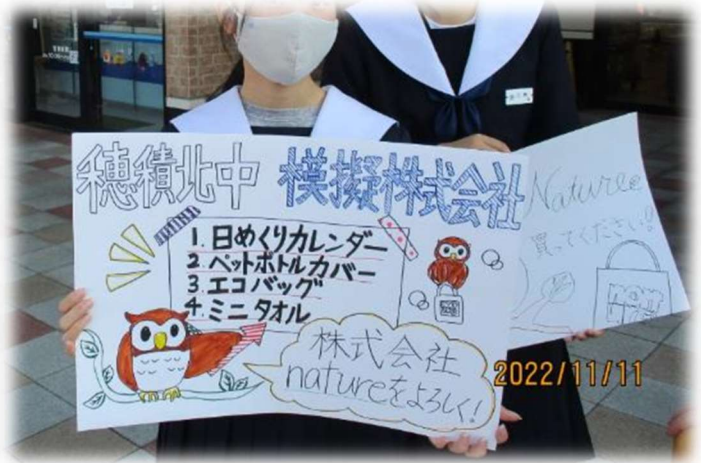 穂積北中 模擬株式会社
1. 日めくりカレンダー
2. ペットボトルカバー
3. エコバッグ
4. ミニタオル
株式会社
natureをよろしく!
Nature
買ってください!
2022/11/11